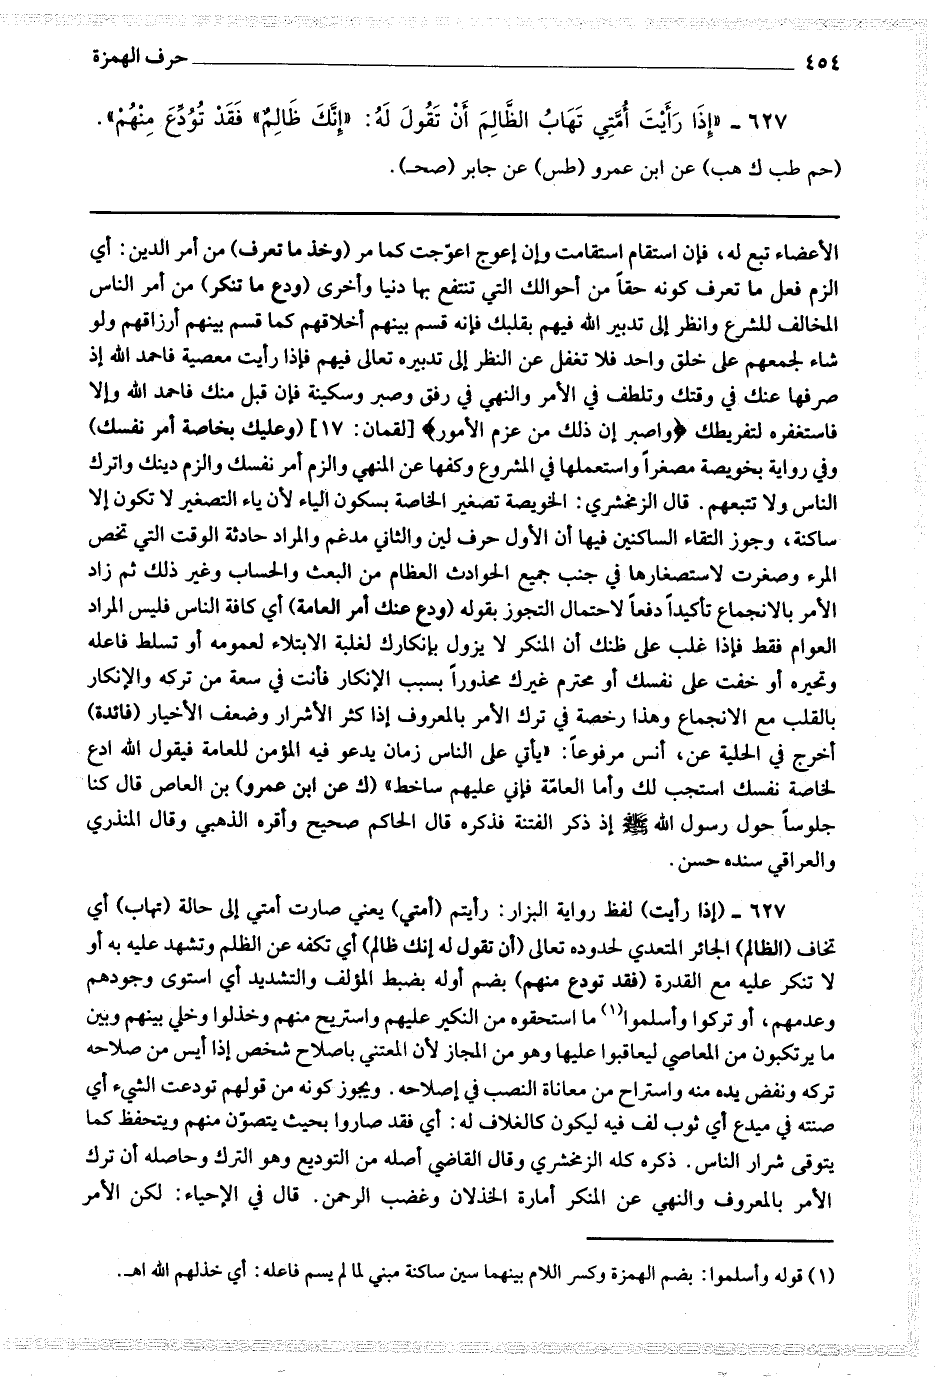 ٤٥٤ حرف الهمزة
٦٢٧ ـ «إِذَا رَأَيْتَ أُمَّتِي تَهَابُ الظَّالِمَ أَنْ تَقُولَ لَهُ: «إِنَّكَ ظَالِمٌ» فَقَدْ تُوُدِّعَ مِنْهُمْ».
(حم طب ك هب) عن ابن عمرو (طس) عن جابر (صحـ).
الأعضاء تبع له، فإن استقام استقامت وإن إعوج اعوّجت كما مر (وخذ ما تعرف) من أمر الدين: أي
الزم فعل ما تعرف كونه حقاً من أحوالك التي تنتفع بها دنيا وأخرى (ودع ما تنكر) من أمر الناس
المخالف للشرع وانظر إلى تدبير الله فيهم بقلبك فإنه قسم بينهم أخلاقهم كما قسم بينهم أرزاقهم ولو
شاء لجمعهم على خلق واحد فلا تغفل عن النظر إلى تدبيره تعالى فيهم فإذا رأيت معصية فاحمد الله إذ
صرفها عنك في وقتك وتلطف في الأمر والنهي في رفق وصبر وسكينة فإن قبل منك فاحمد الله وإلا
فاستغفره لتفريطك ﴿واصبر إن ذلك من عزم الأمور﴾ [لقمان: ١٧] (وعليك بخاصة أمر نفسك)
وفي رواية بخويصة مصغراً واستعملها في المشروع وكفها عن المنهي والزم أمر نفسك والزم دينك واترك
الناس ولا تتبعهم. قال الزمخشري: الخويصة تصغير الخاصة بسكون الياء لأن ياء التصغير لا تكون إلا
ساكنة، وجوز التقاء الساكنين فيها أن الأول حرف لين والثاني مدغم والمراد حادثة الوقت التي تخص
المرء وصغرت لاستصغارها في جنب جميع الحوادث العظام من البعث والحساب وغير ذلك ثم زاد
الأمر بالانجماع تأكيداً دفعاً لاحتمال التجوز بقوله (ودع عنك أمر العامة) أي كافة الناس فليس المراد
العوام فقط فإذا غلب على ظنك أن المنكر لا يزول بإنكارك لغلبة الابتلاء لعمومه أو تسلط فاعله
وتحيره أو خفت على نفسك أو محترم غيرك محذوراً بسبب الإنكار فأنت في سعة من تركه والإنكار
بالقلب مع الانجماع وهذا رخصة في ترك الأمر بالمعروف إذا كثر الأشرار وضعف الأخيار (فائدة)
أخرج في الحلية عن، أنس مرفوعاً: «يأتي على الناس زمان يدعو فيه المؤمن للعامة فيقول الله ادع
لخاصة نفسك استجب لك وأما العامّة فإني عليهم ساخط» (ك عن ابن عمرو) بن العاص قال كنا
جلوساً حول رسول الله ﷺ إذ ذكر الفتنة فذكره قال الحاكم صحيح وأقره الذهبي وقال المنذري
والعراقي سنده حسن.
٦٢٧ ـ (إذا رأيت) لفظ رواية البزار: رأيتم (أمتي) يعني صارت أمتي إلى حالة (تهاب) أي
تخاف (الظالم) الجائر المتعدي لحدوده تعالى (أن تقول له إنك ظالم) أي تكفه عن الظلم وتشهد عليه به أو
لا تنكر عليه مع القدرة (فقد تودع منهم) بضم أوله بضبط المؤلف والتشديد أي استوى وجودهم
وعدمهم، أو تركوا وأسلموا(١) ما استحقوه من النكير عليهم واستريح منهم وخذلوا وخلي بينهم وبين
ما يرتكبون من المعاصي ليعاقبوا عليها وهو من المجاز لأن المعتني باصلاح شخص إذا أيس من صلاحه
تركه ونفض يده منه واستراح من معاناة النصب في إصلاحه. ويجوز كونه من قولهم تودعت الشيء أي
صنته في ميدع أي ثوب لف فيه ليكون كالغلاف له: أي فقد صاروا بحيث يتصوّن منهم ويتحفظ كما
يتوقى شرار الناس. ذكره كله الزمخشري وقال القاضي أصله من التوديع وهو الترك وحاصله أن ترك
الأمر بالمعروف والنهي عن المنكر أمارة الخذلان وغضب الرحمن. قال في الإحياء: لكن الأمر
(١) قوله وأسلموا: بضم الهمزة وكسر اللام بينهما سين ساكنة مبني لما لم يسم فاعله: أي خذلهم الله اهـ.